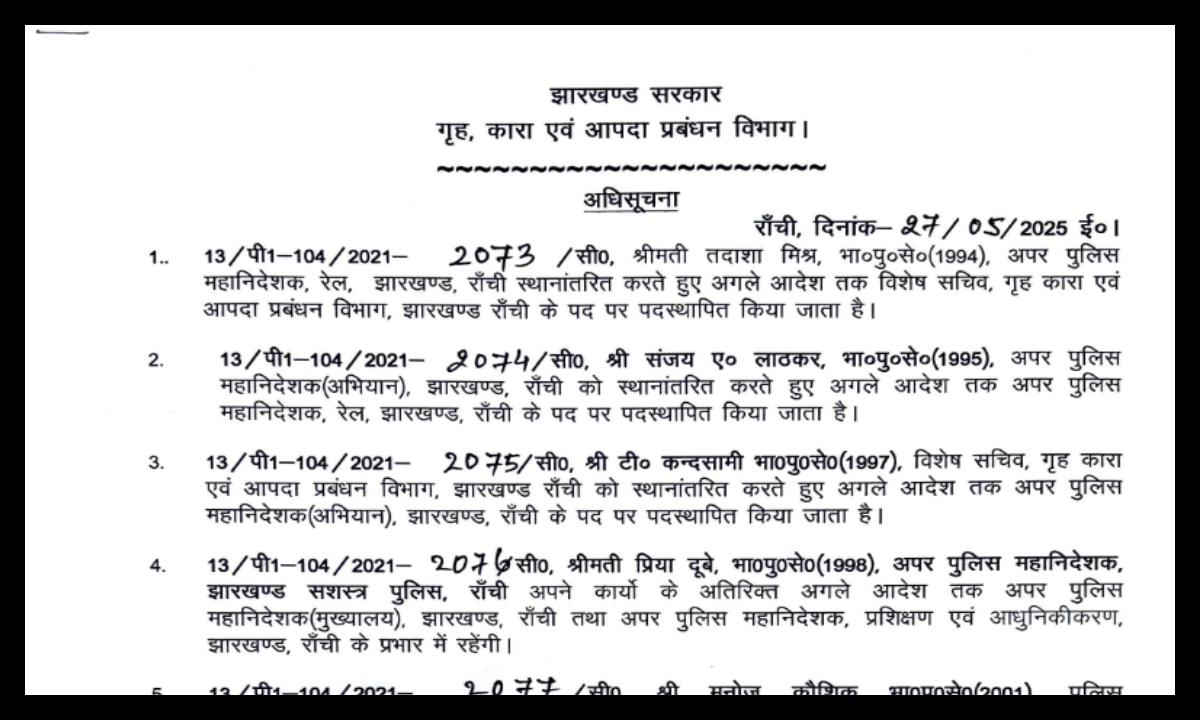 झारखण्ड सरकार
गृह, कारा एवं आपदा प्रबंधन विभाग।
~~~~~~~~~~~~~~~~~~~~~
अधिसूचना
राँची, दिनांक– 27/05/2025 ई०।
1.. 13/पी1–104/2021– 2073 /सी0, श्रीमती तदाशा मिश्र, भा०पु०से०(1994), अपर पुलिस
महानिदेशक, रेल, झारखण्ड, राँची स्थानांतरित करते हुए अगले आदेश तक विशेष सचिव, गृह कारा एवं
आपदा प्रबंधन विभाग, झारखण्ड राँची के पद पर पदस्थापित किया जाता है।
2. 13/पी1–104/2021– 2074/सी0, श्री संजय ए० लाठकर, भा०पु०से०(1995), अपर पुलिस
महानिदेशक(अभियान), झारखण्ड, राँची को स्थानांतरित करते हुए अगले आदेश तक अपर पुलिस
महानिदेशक, रेल, झारखण्ड, राँची के पद पर पदस्थापित किया जाता है।
3. 13/पी1–104/2021– 2075/सी0, श्री टी० कन्दसामी भा0पु0से0(1997), विशेष सचिव, गृह कारा
एवं आपदा प्रबंधन विभाग, झारखण्ड राँची को स्थानांतरित करते हुए अगले आदेश तक अपर पुलिस
महानिदेशक(अभियान), झारखण्ड, राँची के पद पर पदस्थापित किया जाता है।
4. 13/पी1–104/2021– 2076सी0, श्रीमती प्रिया दूबे, भा0पु0से0(1998), अपर पुलिस महानिदेशक,
झारखण्ड सशस्त्र पुलिस, राँची अपने कार्यो के अतिरिक्त अगले आदेश तक अपर पुलिस
महानिदेशक(मुख्यालय), झारखण्ड, राँची तथा अपर पुलिस महानिदेशक, प्रशिक्षण एवं आधुनिकीकरण,
झारखण्ड, राँची के प्रभार में रहेंगी।
5. 13/पी1–104/2021– 2077 /सी0 श्री मनोज कौशिक भा0पु0से0(2001) पुलिस